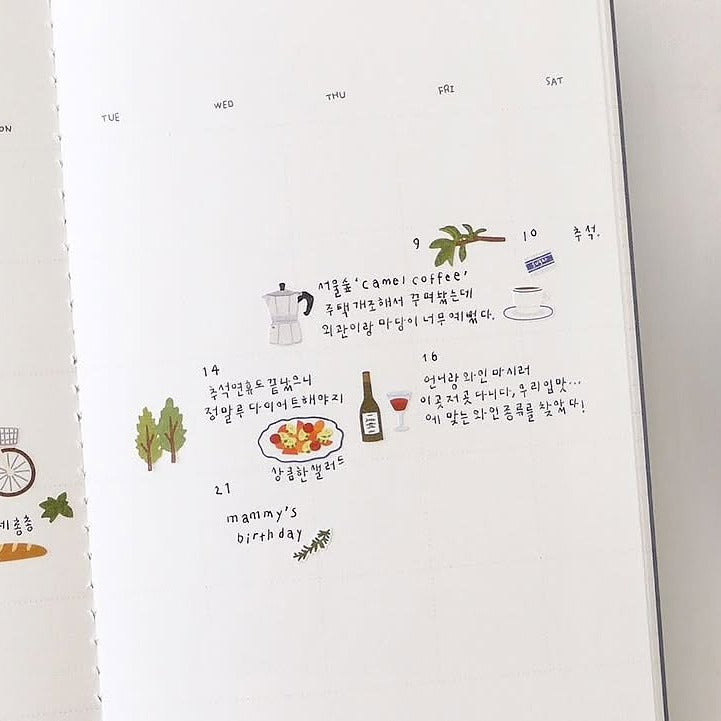 ON
TUE
WED
THU
FRI
SAT
9
10
추석.
서울숲 'camel coffee'
주택개조해서 꾸며놨는데
외관이랑 마당이 너무예뻤다.
14
추석연휴도 끝났으니
정말루 다이어트해야지
16
언니랑 와인 마시러
이곳저곳 다니다, 우리입맛...
에 맞는 와인종류를 찾았다!
상큼한샐러드
21
mammy's
birthday